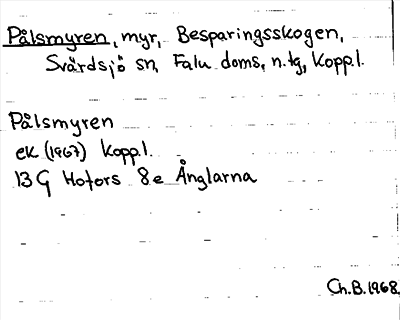 Pålsmyren, myr, Besparingsskogen,
Svärdsjö sn, Falu doms, n. tg, Kopp.l.
Pålsmyren
ek (1967) Kopp.l.
13 G Hofors 8e Ånglarna
Ch.B.1968.